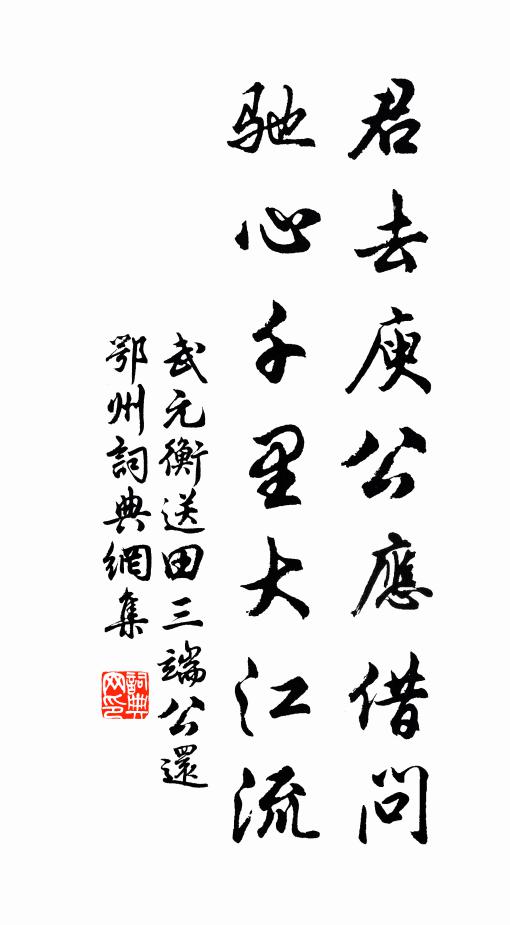 君去庾公應借問
馳心千里大江流
武元衡送田三端公還
鄂州詞典網集
詞典
网印